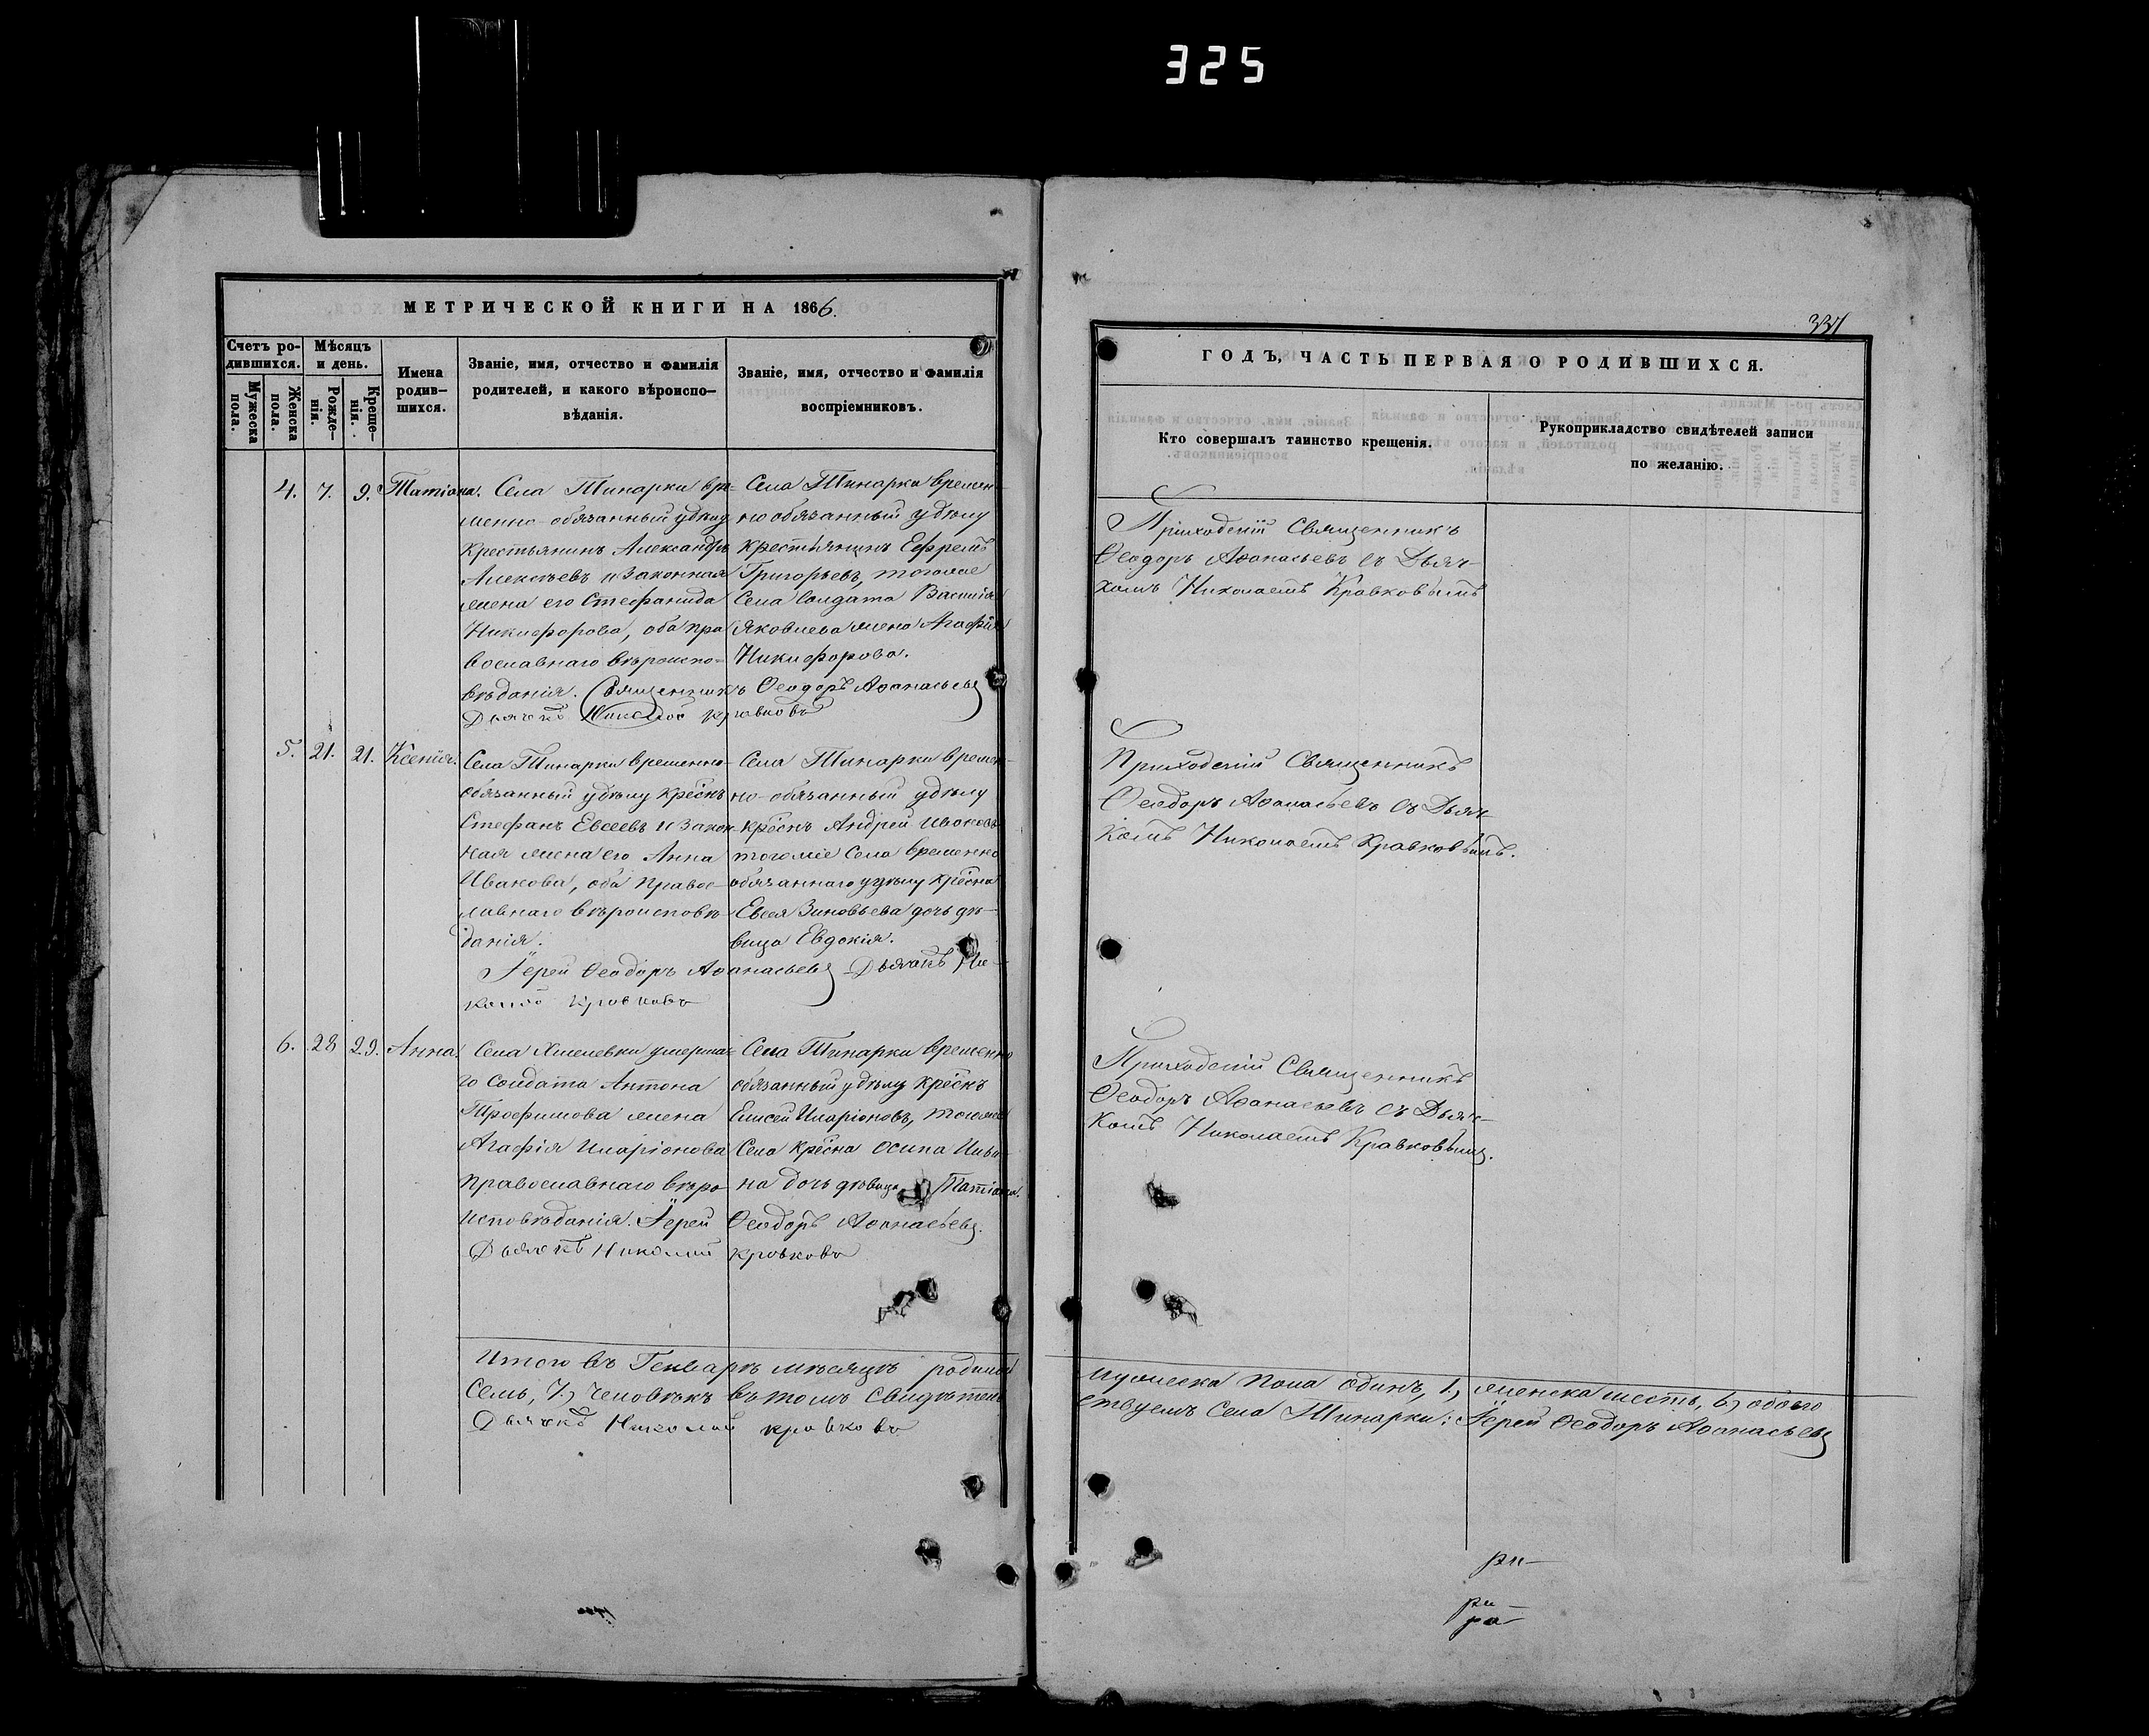 325
МЕТРИЧЕСКОЙ КНИГИ НА 1866.
Счетъ ро-
дившихся.
Мужеска
пола.
Женска
пола.
Мѣсяцъ
и день.
Рожде-
нія.
Креще-
нія.
Имена
родив-
шихся.
Званіе, имя, отчество и фамилія
родителей, и какого вѣроиспо-
вѣданія.
Званіе, имя, отчество и фамилія
воспріемниковъ.
4. 7. 9. Татіана.
Села Тинарки вре-
менно-обязанный удѣлу
Крестьянинъ Александръ
Алексѣевъ и Законная
жена его Стефанида
Никифорова, оба пра
вославнаго вѣроиспо-
вѣданія. Священникъ Ѳеодоръ Аѳанасьевъ
Дьячекъ Николай Кравковъ
Села Тинарки времен-
но обязанный удѣлу
крестьянинъ Ефремъ
Григорьевъ, тогоже
Села Солдата Василія
Яковлева жена Агафія
Никифорова.
5. 21. 21. Ксенія.
Села Тинарки временно-
обязанный удѣлу Крёснъ
Стефанъ Евсеевъ и Закон-
ная жена его Анна
Ивакова, оба Правос-
лавнаго вѣроисповѣ-
данія.
Іерей Ѳеодоръ Аѳанасьевъ Дьячекъ Ни-
колай Кравковъ
Села Тинарки времен-
но-обязанный удѣлу
крёснъ Андрей Ивановъ
тогоже Села временно
обязаннаго удѣлу крёсна
Евсея Зиновьева дочь дѣ-
вица Евдокія.
6. 28 29. Анна.
Села Хмелевки умерша-
го Солдата Антона
Трофимова жена
Агафія Иларіонова
Православнаго вѣро
исповѣданія. Іерей Ѳеодоръ Аѳанасьевъ.
Дьячекъ Николай Кравковъ
Села Тинарки временно
обязанный удѣлу крёснъ
Елисей Иларіоновъ, тогоже
Села крёсна Осипа Ильи-
на дочь дѣвица Татіана.
Итого въ Генварѣ мѣсяцѣ родилось
Семь, 7., человѣкъ въ томъ Свидѣтель
Дьячекъ Николай Кравковъ
337
ГОДЪ, ЧАСТЬ ПЕРВАЯ О РОДИВШИХСЯ.
Кто совершалъ таинство крещенія.
Рукоприкладство свидѣтелей записи
по желанію.
Приходскій Священникъ
Ѳеодоръ Аѳанасьевъ съ Дьяч-
комъ Николаемъ Кравковымъ
Приходскій Священникъ
Ѳеодоръ Аѳанасьевъ съ Дьяч-
комъ Николаемъ Кравковымъ.
Приходскій Священникъ
Ѳеодоръ Аѳанасьевъ съ Дьяч-
комъ Николаемъ Кравковымъ.
мужеска пола одинъ, 1., женска шесть, 6., обоего
ствуемъ Села Тинарки: Іерей Ѳеодоръ Аѳанасьевъ